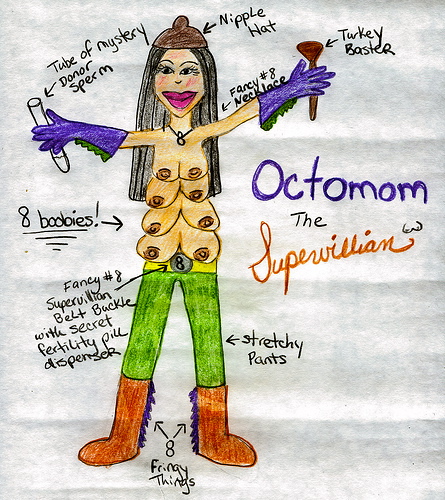 Nipple
Hat
Turkey
Baster
Tube of mystery
Donor
Sperm
Fancy #8
Necklace
8
Octomom
The
Supervillian
8 boobies!
8
Fancy #8
Supervillian
Belt Buckle
with secret
fertility pill
dispenser
stretchy
Pants
8
Fringy
Things